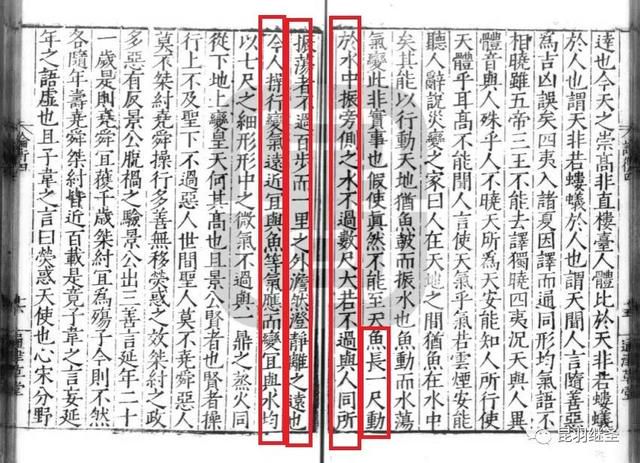 達也今天之崇高非直樓臺人體比於天非若螻蟻
於人也謂天非若螻蟻於人也謂天聞人言隨善惡
為吉凶誤矣四夷入諸夏因譯而通同形均氣語不
相曉雖五帝三王不能去譯獨曉四夷況天與人異
體音與人殊乎人不曉天所為天安能知人所行使
天體乎耳高不能聞人言使天氣乎氣若雲煙安能
聽人辭說災變之家曰人在天地之間猶魚在水中
矣其能以行動天地猶魚鼓而振水也魚動而水蕩
氣變此非實事也假使真然不能至天魚長一尺動
於水中振旁側之水不過數尺大若不過與人同所
振蕩者不過百步而一里之外澹然澄靜離之遠也
今人操行變氣遠近宜與魚等氣應而變宜與水均
以七尺之細形形中之微氣不過與一鼎之蒸火同
從下地上變皇天何其高也且景公賢者也賢者操
行上不及聖下不過惡人世間聖人莫不堯舜惡人
莫不桀紂堯舜操行多善無移熒惑之效桀紂之政
多惡有反景公脫禍之驗景公出三善言延年二十
一歲是則堯舜宜獲千歲桀紂宜為殤子今則不然
各隨年壽堯舜桀紂皆近百載是竟子韋之言妄延
年之語虛也且子韋之言曰熒惑天使也心宋分野
論衡四
通津草堂
昆羽继圣